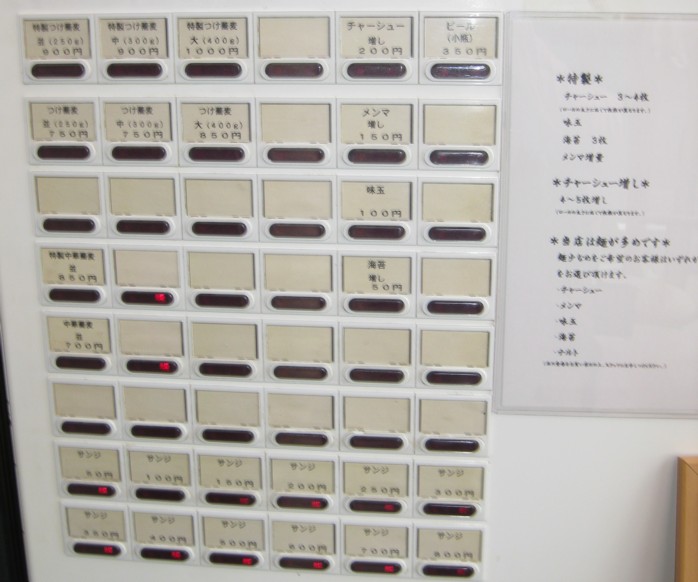 特製つけ蕎麦
並(250g)
900円
特製つけ蕎麦
中(300g)
900円
特製つけ蕎麦
大(400g)
1000円
チャーシュー
増し
200円
ビール
(小瓶)
350円
つけ蕎麦
並(250g)
750円
つけ蕎麦
中(300g)
750円
つけ蕎麦
大(400g)
850円
メンマ
増し
150円
味玉
100円
特製中華蕎麦
並
850円
海苔
増し
50円
中華蕎麦
並
700円
サンジ
50円
サンジ
100円
サンジ
150円
サンジ
200円
サンジ
250円
サンジ
300円
サンジ
350円
サンジ
400円
サンジ
500円
サンジ
600円
サンジ
700円
サンジ
*特製*
チャーシュー 3~4枚
味玉
海苔 3枚
メンマ増量
*チャーシュー増し*
4~5枚増し
*当店は麺が多めです*
麺少なめをご希望のお客様はいずれか
をお選び頂けます。
·チャーシュー
·メンマ
·味玉
·海苔
·ナルト